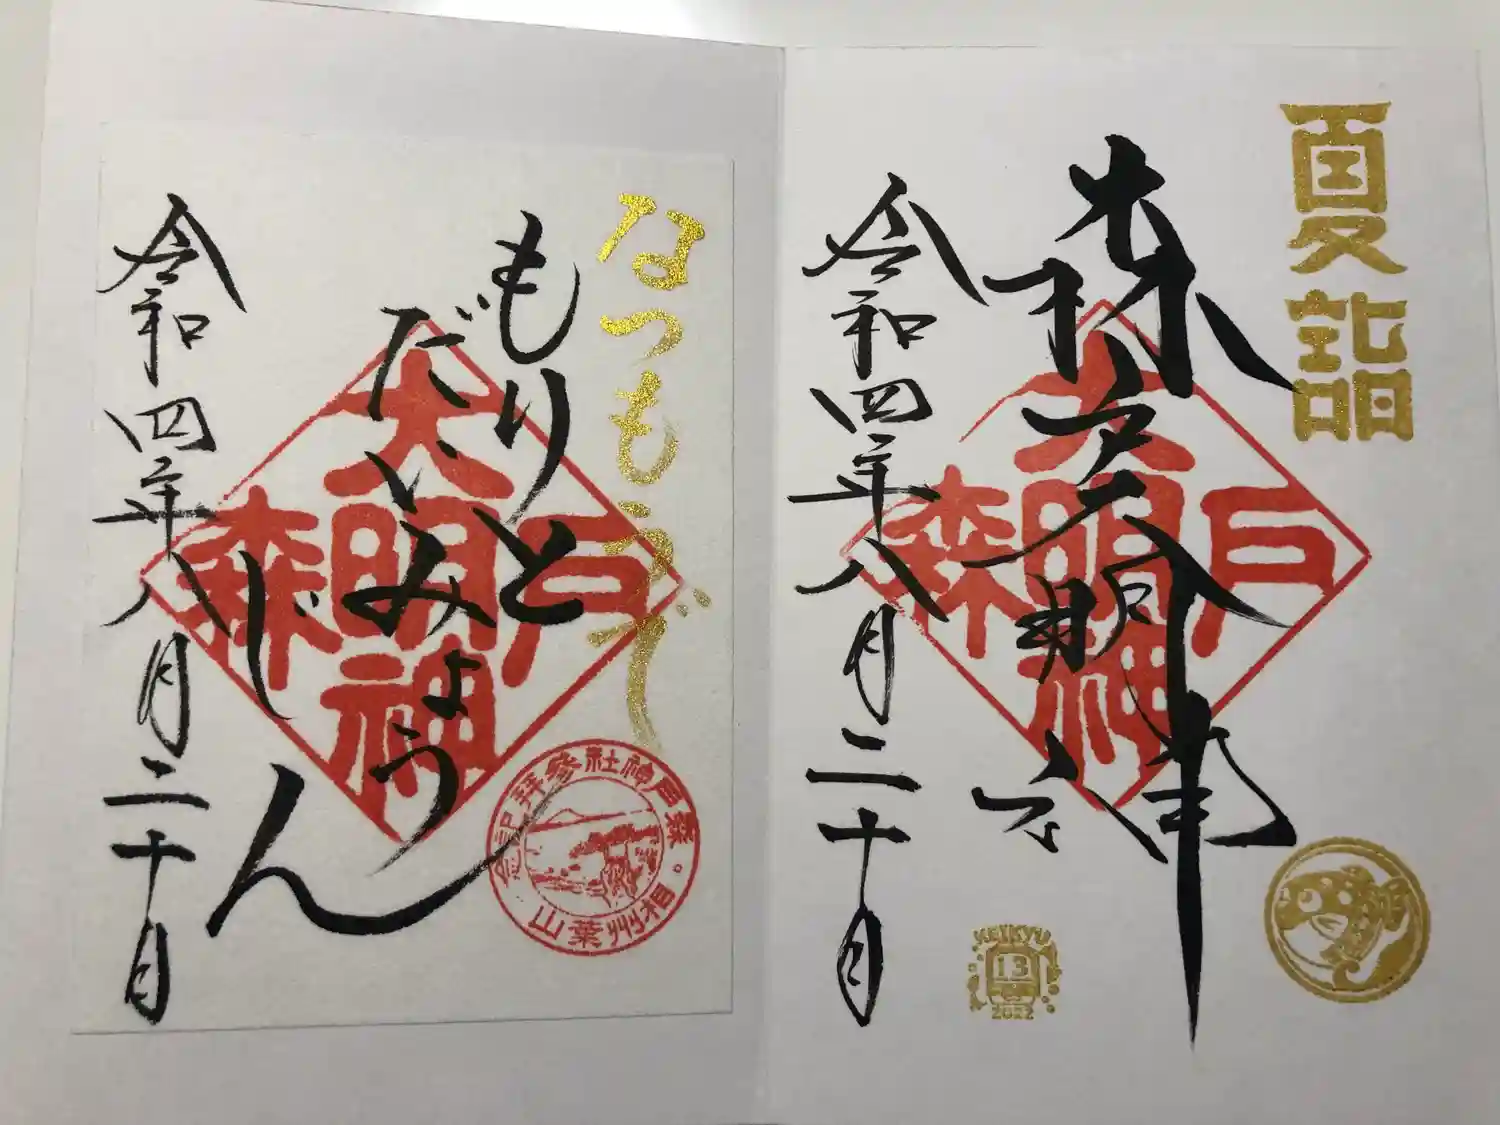 夏詣
森戸大明神
森戸大明神
令和四年八月二十日
KEIKYU
13
2022
なつもうで
もりと
だいみょう
じん
森戸大明神
令和四年八月二十日
相州葉山
森戸神社參拜記念